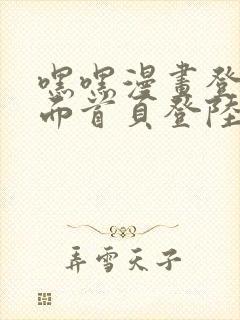 嘿嘿漫畫登
而首頁登陸
弄雪天子